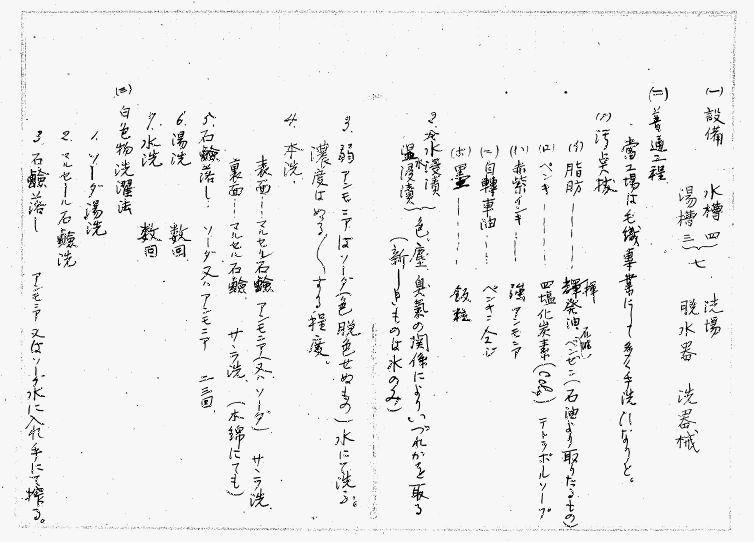 (一) 設備 水槽 四 洗場
湯槽 三 七 脱水器 洗器械
(二) 普通工程
當工場は毛織專業にして多く手洗ひなりと。
(1) 汚点抜
(イ) 脂肪 ------- 揮発油、ベンゼン(石油より取りたるもの)
(ロ) ペンキ ------ 四塩化炭素 (CCl4) テトラポールソープ
(ハ) 赤紫インキ ------ 強アンモニア
(ニ) 自轉車油 ------ ペンキに仝じ
(ホ) 墨 ------- 飯粒
2. 冷水浸漬
温水浸漬 色、塵、臭氣の関係によりいづれかを取る
(新しきものは水のみ)
3. 弱アンモニア又はソーダ(色脱色せぬもの)水にて洗ふ。
濃度はぬる〱する程度。
4. 本洗
表面---マルセル石鹸 アンモニア(又ハソーダ) サヽラ洗
裏面---マルセル石鹸 サヽラ洗 (木綿にても)
5. 石鹸落し ソーダ又ハアンモニア 二三回
6. 湯洗 数回
7. 水洗 数回
(三) 白色物洗濯法
1. ソーダ湯洗
2. マルセール石鹸洗
3. 石鹸落し アンモニア又はソーダ水に入れ手にて搾る。